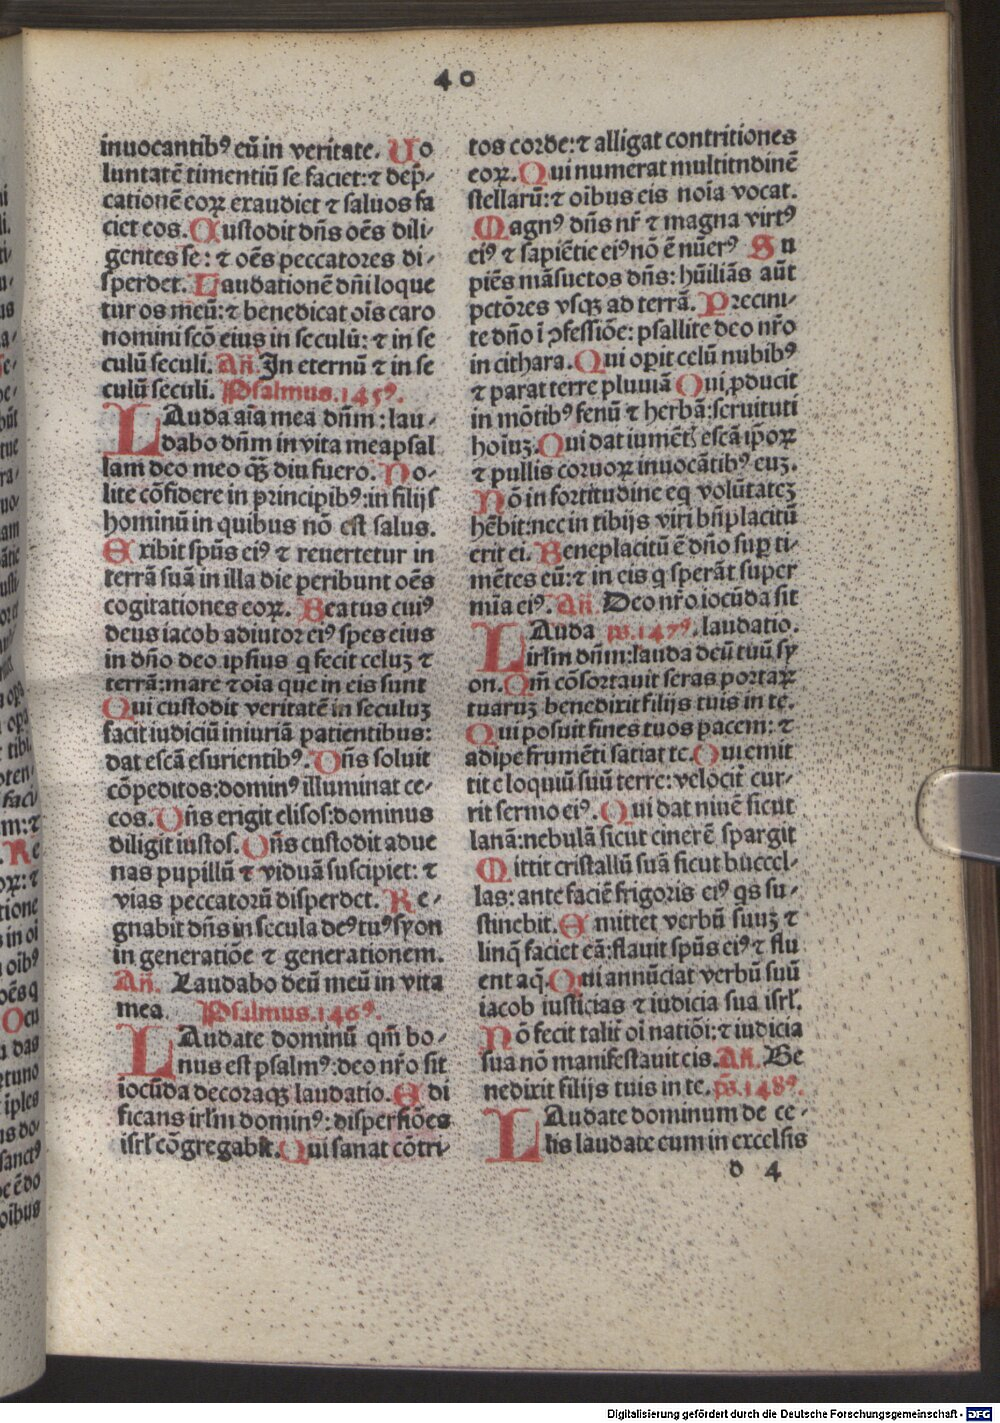 40
inuocantibꝰ eū in veritate. Uo
luntatē timentiū se faciet: ⁊ dep̄-
cationē eoꝝ exaudiet ⁊ saluos fa
ciet eos. Custodit dn̄s oēs dili-
gentes se: ⁊ oēs peccatores di-
sperdet. Laudationē dn̄i loque
tur os meū: ⁊ benedicat oīs caro
nomini scō eius in seculū: ⁊ in se
culū seculi. An̄. In eternū ⁊ in se
culū seculi. Psalmus. 145ꝰ.
LAuda aīa mea dn̄m: lau-
dabo dn̄m in vita mea psal
lam deo meo qꝫ diu fuero. No-
lite cōfidere in principibꝰ: in filijs
hominū in quibus nō est salus.
Exibit spūs eiꝰ ⁊ reuertetur in
terrā suā in illa die peribunt oēs
cogitationes eoꝝ. Beatus cuiꝰ
deus iacob adiutor eiꝰ spes eius
in dn̄o deo ipsius q fecit celuꝫ ⁊
terrā: mare ⁊ oīa que in eis sunt
Qui custodit veritatē in seculuꝫ
facit iudiciū iniuriā patientibus:
dat escā esurientibꝰ. Dn̄s soluit
cōpeditos: dominꝰ illuminat ce-
cos. Dn̄s erigit elisos: dominus
diligit iustos. Dn̄s custodit adue
nas pupillū ⁊ viduā suscipiet: ⁊
vias peccatorū disperdet. Re-
gnabit dn̄s in secula deꝰ tuꝰ syon
in generatiōe ⁊ generationem.
An̄. Laudabo deū meū in vita
mea Psalmus. 146ꝰ.
LAudate dominū qm̄ bo-
nus est psalmꝰ: deo nr̄o sit
iocūda decoraqꝫ laudatio. Edi
ficans irl̄m dominꝰ: dispersiōes
isrl̄ cōgregabit. Qui sanat cōtri-
tos corde: ⁊ alligat contritiones
eoꝝ. Qui numerat multitndinē
stellarū: ⁊ oībus eis noīa vocat.
Magnꝰ dn̄s nr̄ ⁊ magna virtꝰ
eiꝰ ⁊ sapiētie eiꝰ nō ē nūerꝰ Su
piēs māsuetos dn̄s: hūiliās aūt
pctōres vsqꝫ ad terrā. Precini-
te dn̄o ī ꝯfessiōe: psallite deo nr̄o
in cithara. Qui opit celū nubibꝰ
⁊ parat terre pluuiā Qui ꝓducit
in mōtibꝰ fenū ⁊ herbā: seruituti
hoīuꝫ. Qui dat iumēt escā ip̄oꝝ
⁊ pullis coruoꝝ inuocātibꝰ euꝫ.
Nō in fortitudine eq volūtateꝫ
hēbit: nec in tibijs viri bn̄placitū
erit ei. Beneplacitū ē dn̄o sup ti-
mētes eū: ⁊ in eis q sperāt super
mīa eiꝰ. An̄. Deo nr̄o iocūda sit
LAuda ps. 147ꝰ. laudatio.
irl̄m dn̄m: lauda deū tuū sy
on. Qm̄ cōfortauit seras portaꝝ
tuaruꝫ benedixit filijs tuis in te.
Qui posuit fines tuos pacem: ⁊
adipe frumēti satiat te. Qui emit
tit eloquiū suū terre: velocit cur-
rit sermo eiꝰ. Qui dat niuē sicut
lanā: nebulā sicut cinerē spargit
Mittit cristallū suā sicut buccel-
las: ante faciē frigoris eiꝰ qs su-
stinebit. Emittet verbū suuꝫ ⁊
linq̄faciet eā: flauit spūs eiꝰ ⁊ flu
ent aq̄. Qui annūciat verbū suū
iacob iusticias ⁊ iudicia sua isrl̄.
Nō fecit talit̄ oi natiōi: ⁊ iudicia
sua nō manifestauit eis. An̄. Be
nedixit filijs tuis in te. ps. 148ꝰ.
LAudate dominum de ce-
lis laudate eum in excelsis
d 4
Digitalisierung gefördert durch die Deutsche Forschungsgemeinschaft - DFG